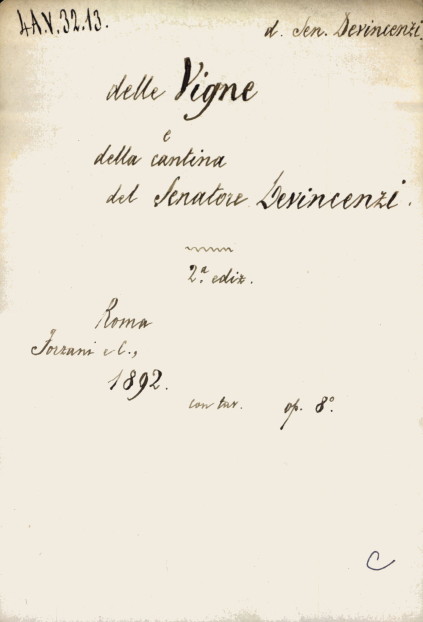 4A.V.32.13.
d. Sen. Devincenzi.
delle Vigne
e
della cantina
del Senatore Devincenzi.
2.ª ediz.
Roma
Forzani e C.,
1892.
con tav. op. 8.º
C